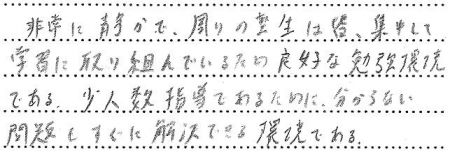 非常に静かで、周りの塾生は皆、集中して
学習に取り組んでいるため良好な勉強環境
である。少人数指導であるために、分からない
問題もすぐに解決できる環境である。